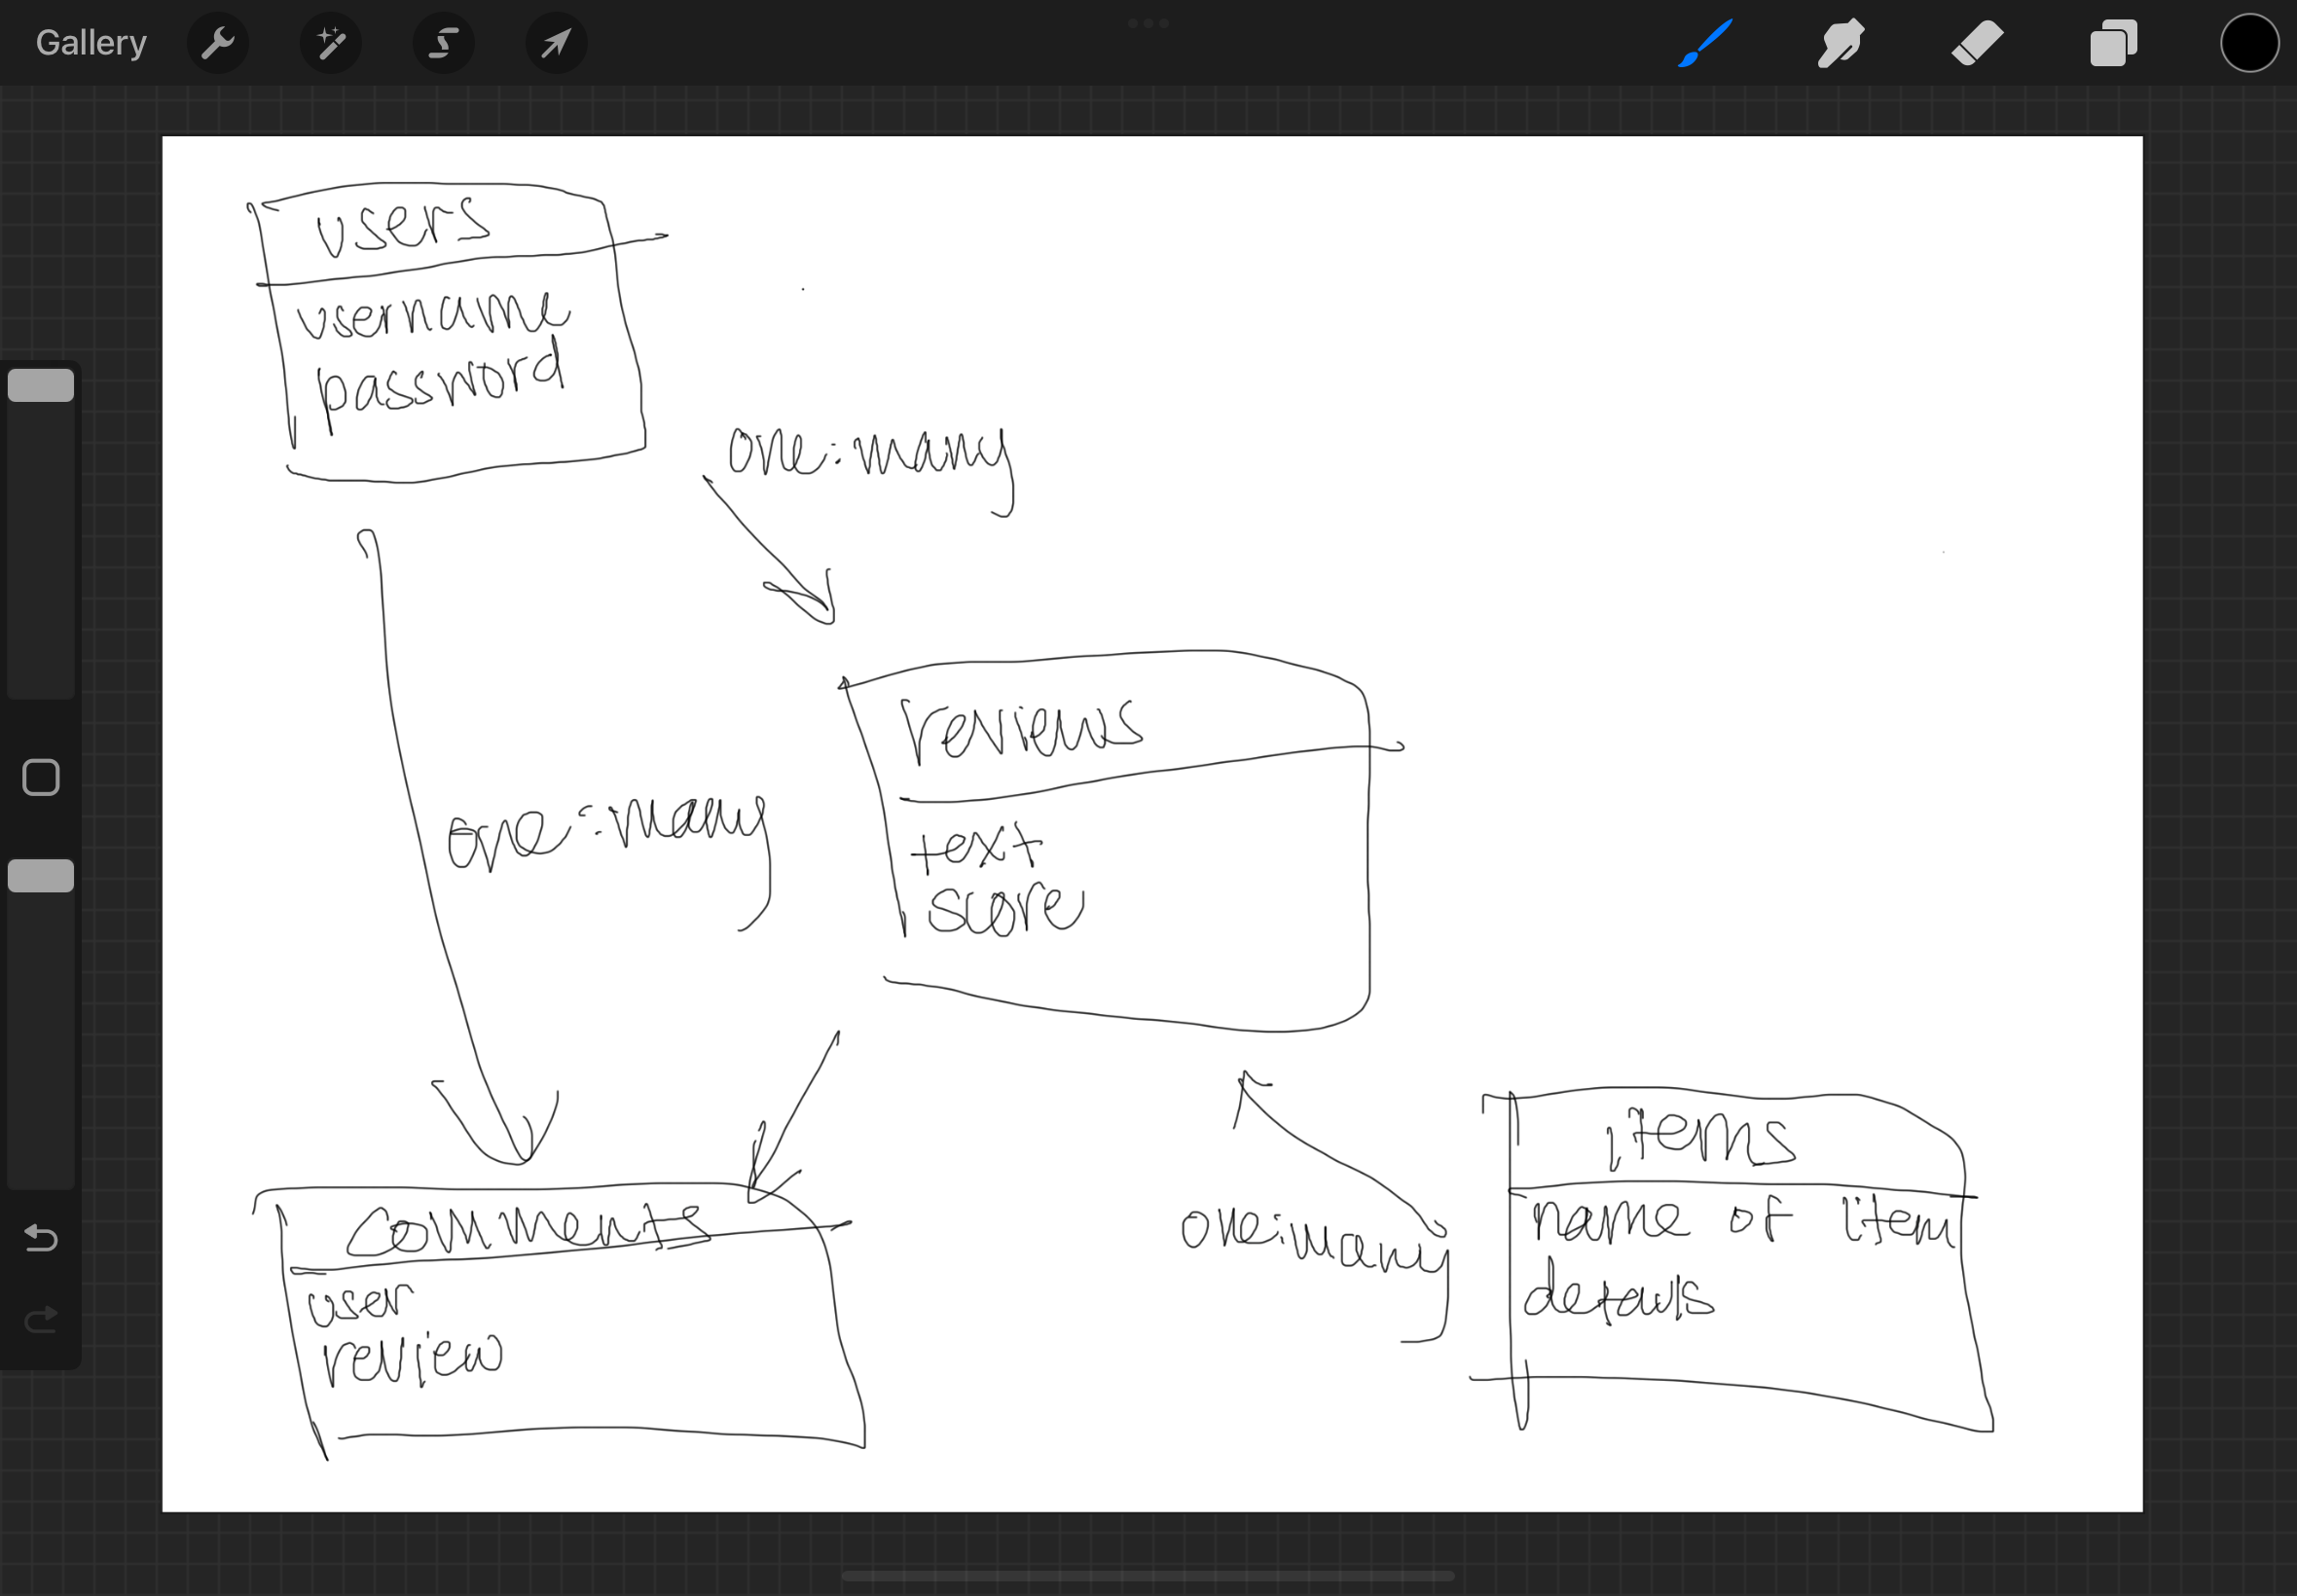 Gallery
users
username
password
one:many
reviews
text
score
one:many
comments
user
review
one:many
items
name of item
details